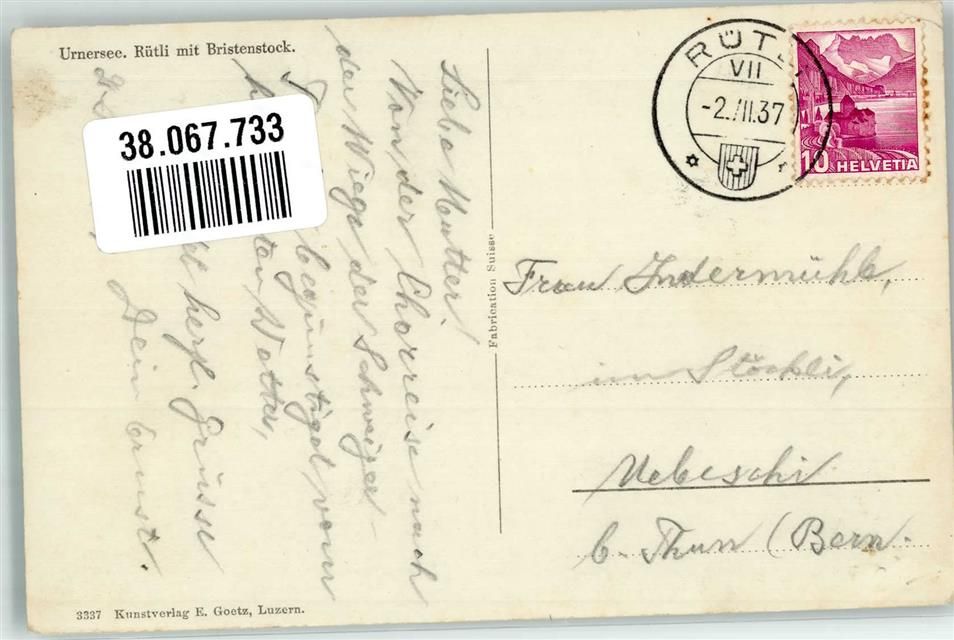 Urnersee. Rütli mit Bristenstock.
38.067.733
Liebe Mutter!
Von der Chorreise nach
der Wiege der Schweizer-
begünstiget vom
Wetter,
herzl. Grüsse
Dein Ernst.
Fabrication Suisse
RÜTL
VII
-2.VII.37
10 HELVETIA
Frau Indermühle,
im Stöckli,
Uebeschi
b. Thun (Bern.
3337 Kunstverlag E. Goetz, Luzern.